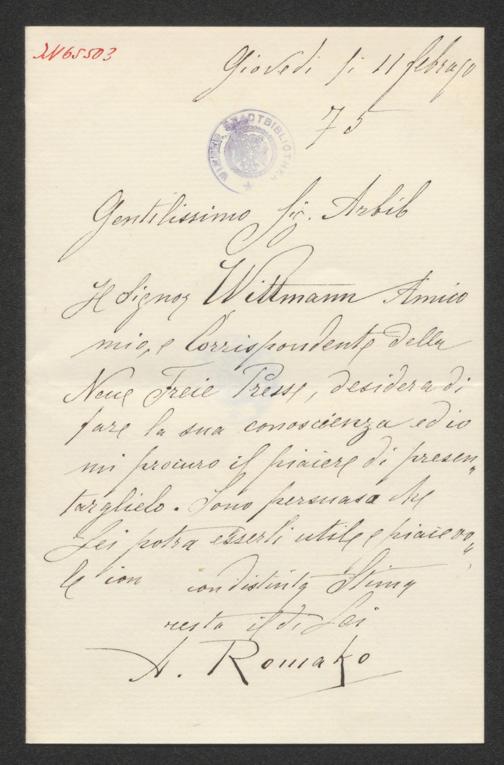 IN 65503
Giovedi li 11 febrajo
75
WIENER STADTBIBLIOTHEK
Gentilissimo Sig. Arbib
Il Signor Wittmann Amico
mio, e Corrispondente della
Neue Freie Presse, desidera di
fare la sua conoscienza ed io
mi procuro il piaiere di presen„
targlielo. Sono persuasa che
Lei potra esserli utile e piaievo„
le con distinta Stima
resta il di Lei
A. Romako